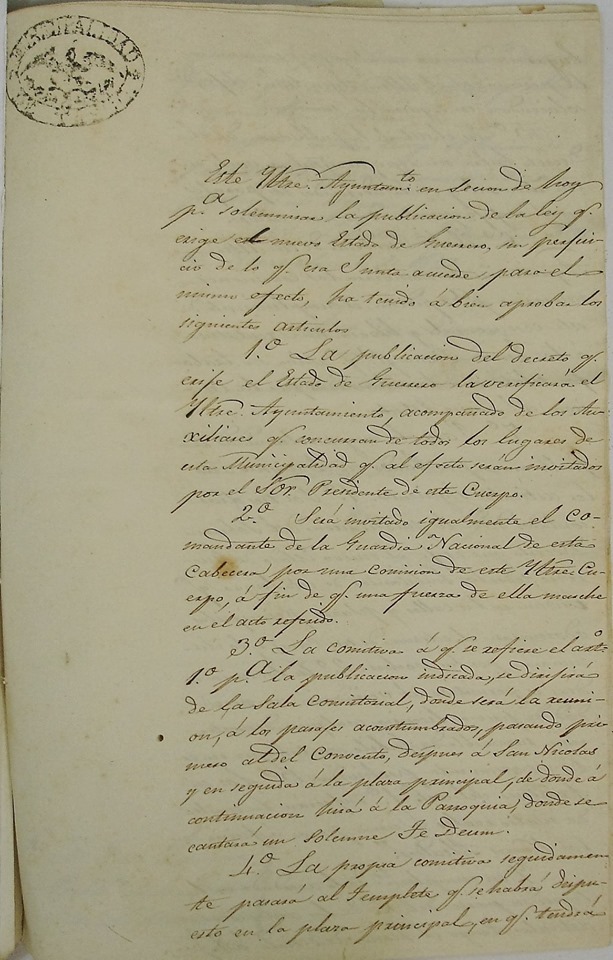 Este Yltre. Ayuntamto. en secion de hoy
pa. solemnisar la publicacion de la ley q.
erige el nuevo Estado de Guerrero, sin perjui-
cio de lo q. esa Junta acuerde para el
mismo efecto, ha tenido á bien aprobar los
siguientes articulos
1.º La publicacion del decreto q.
erije el Estado de Guerrero la verificará el
Yltre. Ayuntamiento, acompañado de los Au-
xiliares q. concurran de todos los lugares de
esta Municipalidad q. al efecto serán invitados
por el SOr. Presidente de este Cuerpo.
2.º Será invitado igualmente el Co-
mandante de la Guardia Nacional de esta
Cabecera por una comision de este Yltre. Cu-
erpo, á fin de q. una fuerza de ella marche
en el acto referido.
3.º La comitiva á q. se refiere el arto.
1.º pa. la publicacion indicada, se dirijirá
de la Sala Consistorial, donde será la reuni-
on, á los parajes acostumbrados, pasando pri-
mero al del Convento, despues á San Nicolas
y en seguida á la plaza principal, de donde á
continuacion hirá á la Parroquia, donde se
cantará un solemne Te Deum.
4.º La propia comitiva seguidamen
te pasará al Templete q. se habrá dispu-
esto en la plaza principal, en q. tendrá